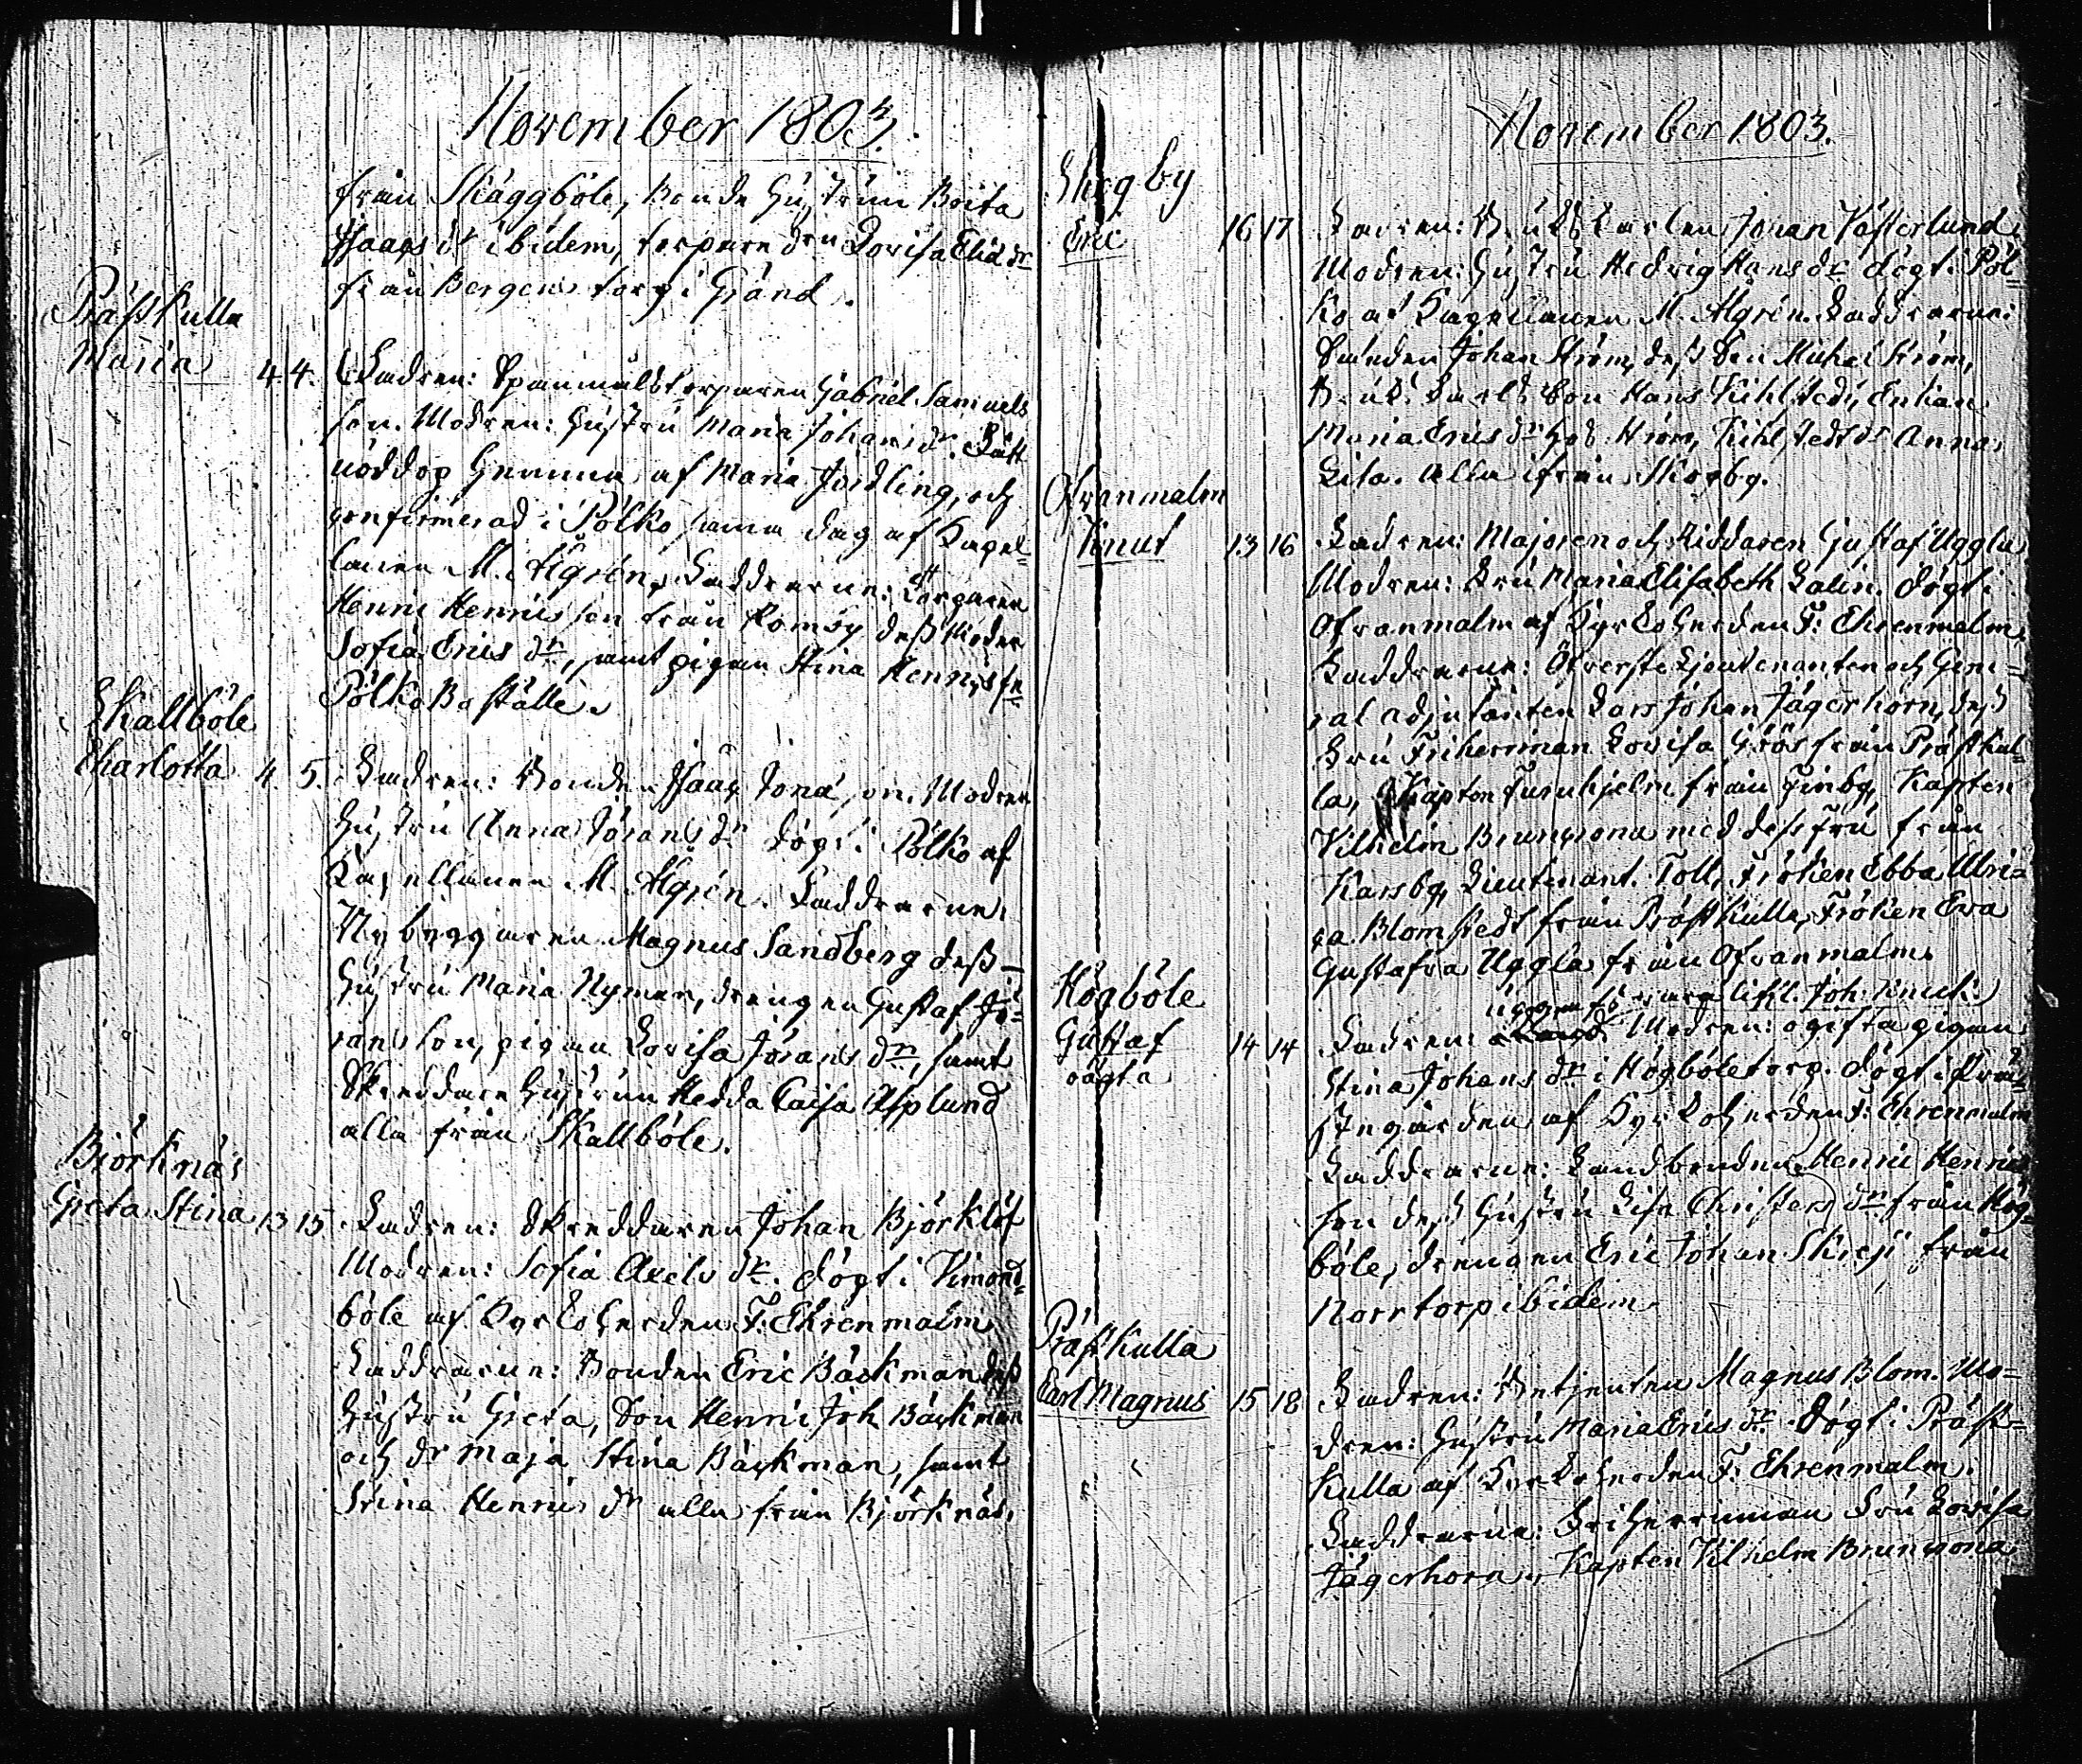 November 1803.
från Skäggböle, Bonde Hustrun Brita
Isaacs dr ibidem, torpare drn Lovisa Elid dr
från Bergens torp i Gränd.
Prästkulla
Maria 4. 4. Fadren: Spanmålstorparen Gabriel Samuels
son. Modren: Hustru Maria Johans dr. Fått
nöddop hemma af Maria Jordling, och
confirmerad i Pölkö samma dag af Capel=
lanen M. Algrén. Faddrarne: Torparen
Henric Henricsson från Romsy dess Moder
Sofia Erics dr, samt pigan Stina Henrics
Pölkö Boställe.
Skallböle
Charlotta 4. 5. Fadren: Bonden Isaac Jona son. Modren
Hustru Anna Jörans dr döpt i Pölkö af
Capellanen M. Algrén. Faddrarne:
Nybyggaren Magnus Sandberg dess
Hustru Maria Nyman, drengen Gustaf Jö=
ransson, pigan Lovisa Jörans dr, samt
Skreddare Hustrun Hedda Caisa Asplund
alla från Skallböle.
Björknäs
Greta Stina 13 15 Fadren: Skreddaren Johan Björklöf
Modren: Sofia Axels dr. döpt i Vimond=
böle af Kyrkoherden F: Ehrenmalm
Faddrarne: Bonden Eric Bäckman dess
Hustru Greta, Son Henric Joh Bäckman
och dr Maja Stina Bäckman, samt
Stina Henrics dr alla från Björknäs.
November 1803.
Skogby
Eric 16 17 Fadren: Bruks Karlen Jonan Västerlund
Modren: Hustru Hedvig Hans dr döpt i Pöl=
kö af Capellanen M. Algrén. Faddrarne:
Smeden Johan Ström, dess Son Michel Ström,
Bruks Karls Son Hans Kihlstedt, Enkan
Maria Erics dr hos Ström, Kihlstedts dr Anna
Lisa. Alla ifrån Skogby.
Ofvanmalm
Knut 13 16 Fadren: Majoren och Riddaren Gustaf Uggla
Modren: Fru Maria Elisabeth Lalin. döpt i
Ofvanmalm af Kyrkoherden F: Ehrenmalm.
Faddrarne: Öfverste Lieutenanten och Gene=
ral adjutanten Lars Johan Jägerhorn, dess
Fru Friherrinnan Lovisa Göös från Prästkul=
la, Kapten Furuhjelm från Finby, Kapten
Vilhelm Bruncrona med dess fru från
Karsby, Lieutenant Toll, Fröken Ebba Ulri=
ca Blomstedt från Prästkulla, Fröken Eva
Gustafva Uggla från Ofvanmalm.
Högböle
Gustaf 14 14 Fadren: uppgifves vara Joh: Modren: ogifta pigan
oägta
Stina Johans dr i Högböletorp. döpt i Prä=
stegården af Kyrkoherden F: Ehrenmalm
Faddrarne: Landbonden Henric Henrics
son dess Hustru Lisa Christers dr från Hög=
böle, drengen Eric Johan från
Norrtorp ibidem.
Prästkulla
Carl Magnus 15 18 Fadren: Betjenten Magnus Blom. Mo=
dren: Hustru Maria Erics dr. Döpt i Präst=
kulla af Kyrkoherden F: Ehrenmalm.
Faddrarne: Friherrinnan Fru Lovisa
Jägerhorn, Kapten Vilhelm Bruncrona